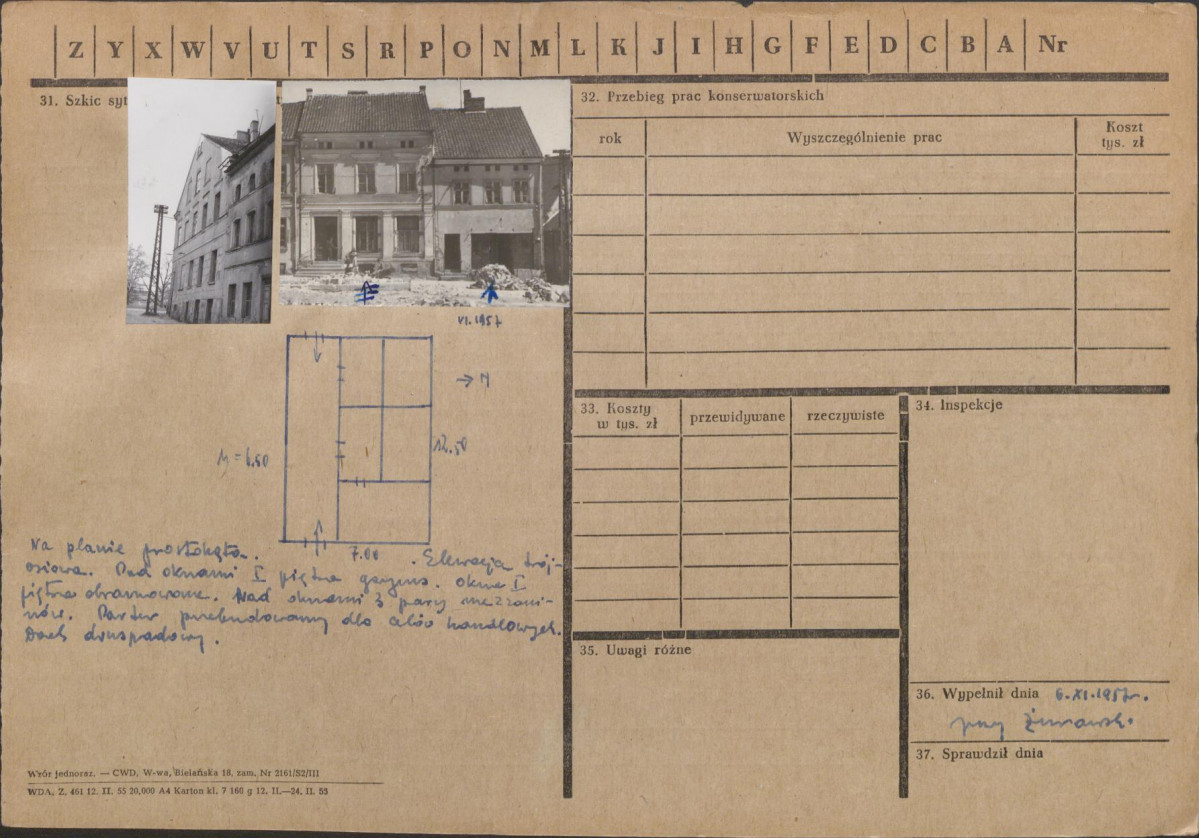 Z Y X W V U T S R P O N M L K J I H G F E D C B A Nr
31. Szkic syt
32. Przebieg prac konserwatorskich
rok
Wyszczególnienie prac
Koszt
tys. zł
VI.1957
→ N
12.50
7.00
Na planie prostokąta. Elewacja trój-
osiowa. Pod oknami I piętra gzyms. Okna I
piętra obramowane. Nad oknami 3 pary mezzani-
nów. Parter przebudowany dla celów handlowych.
Dach dwuspadowy.
33. Koszty
w tys. zł
przewidywane
rzeczywiste
34. Inspekcje
35. Uwagi różne
36. Wypełnił dnia 6.XI.1957r.
37. Sprawdził dnia
Wzór jednoraz. — CWD, W-wa, Bielańska 18, zam. Nr 2161/S2/III
WDA. Z. 461 12. II. 55 20.000 A4 Karton kl. 7 160 g 12. II.—24. II. 55